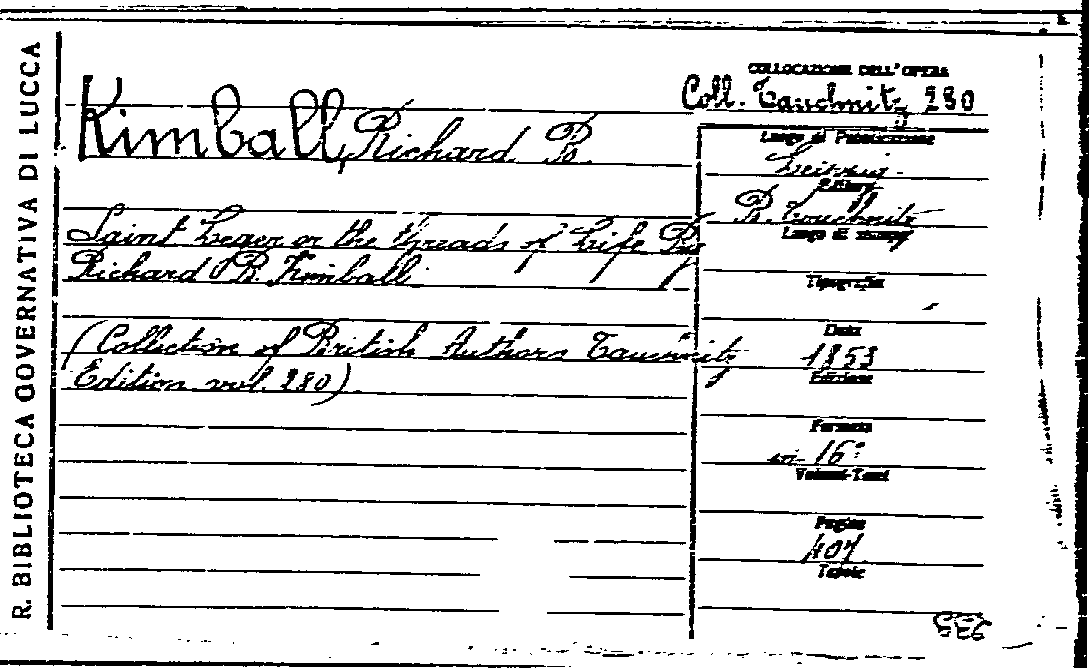 R. BIBLIOTECA GOVERNATIVA DI LUCCA
COLLOCAZIONE DELL'OPERA
Coll. Tauchnitz 280
Kimball, Richard B.
Luogo di Pubblicazione
Leipzig
Editore
B. Tauchnitz
Luogo di stampa
Saint Leger or the threads of Life By
Richard B. Kimball
Tipografia
(Collection of British Authors Tauchnitz
Edition vol. 280)
Data
1853
Edizione
Formato
in 16°
Volumi-Tomi
Pagine
407
Tavole